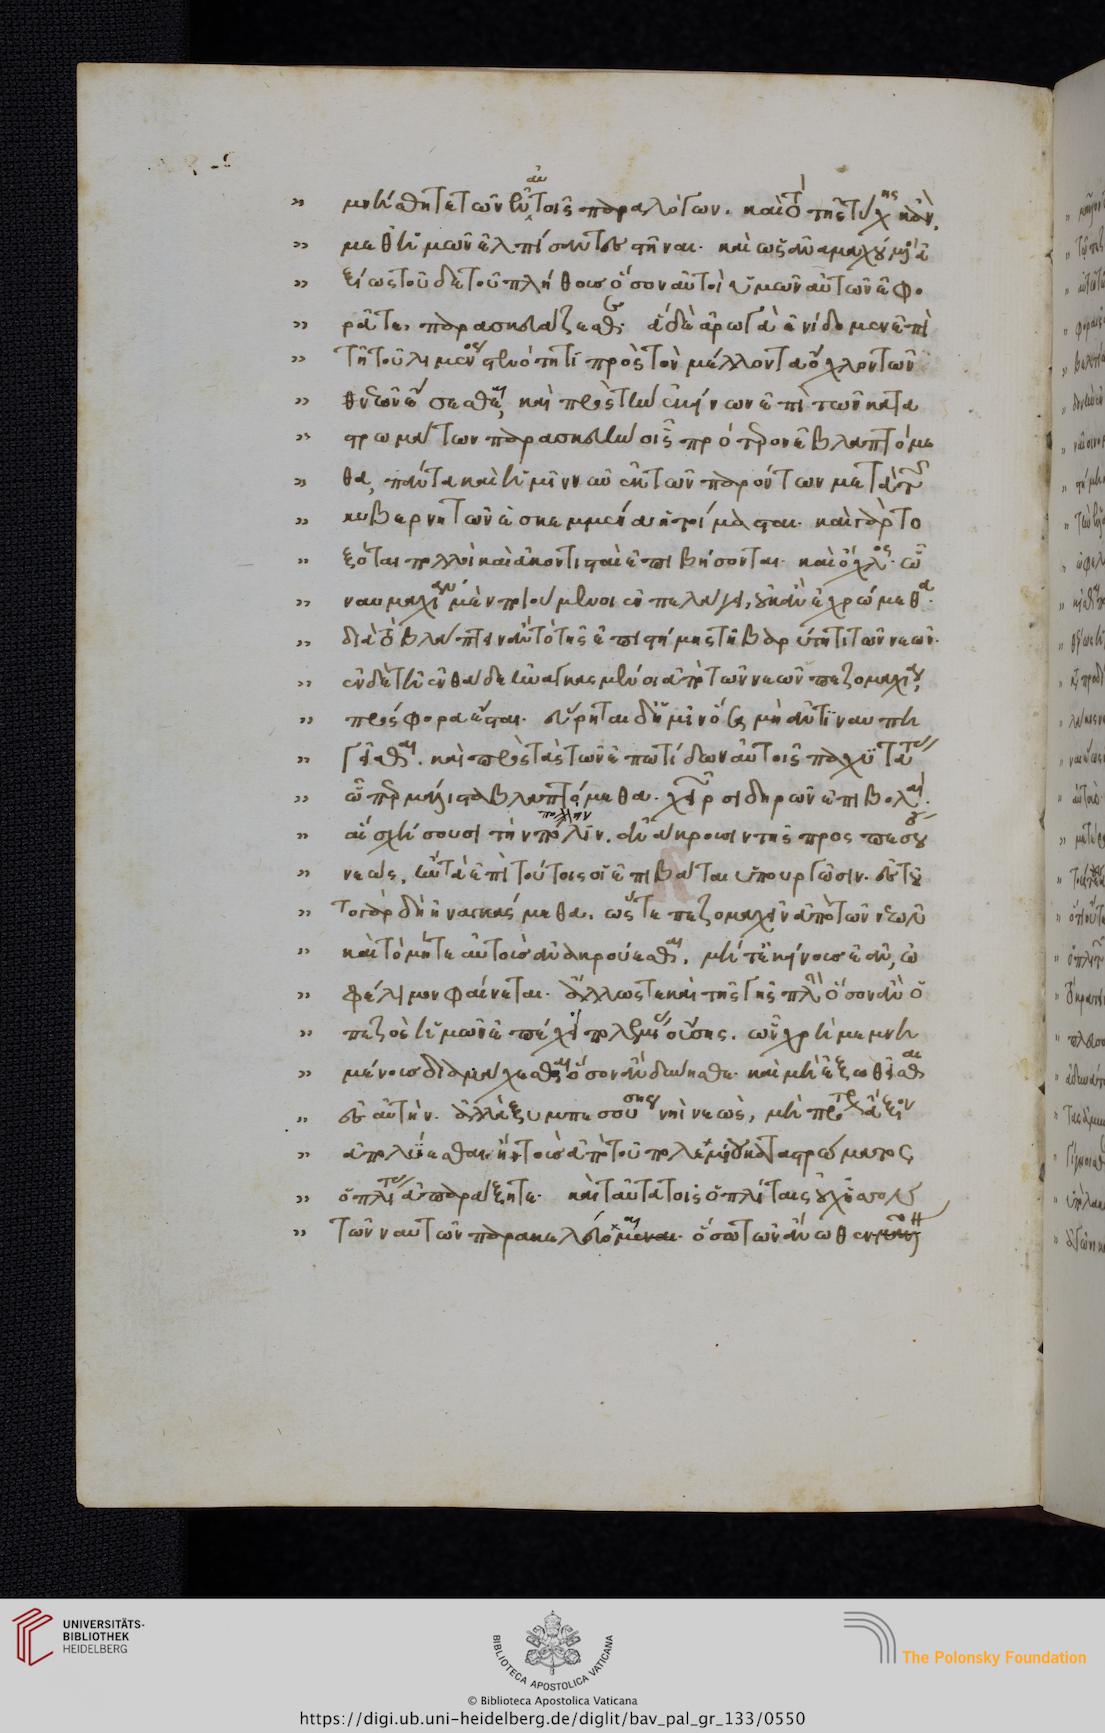 » μνήσθητε τῶν ἐν τοῖς παραλόγων. καὶ τὸ τῆς τύχης κἂν
» μεθ' ἡμῶν ἐλπίσαντες στῆναι. καὶ ὡς ἀναμαχούμενοι ἀ
» ξίως τοῦδε τοῦ πλήθους ὅσον αὐτοὶ ὑμῶν αὐτῶν ἐφο
» ρᾶτε, παρασκευάζεσθε. ἃ δὲ ἀρωγὰ ἐνίδομεν ἐπὶ
» τῇ τοῦ λιμένος στενότητι πρὸς τὸν μέλλοντα ὄχλον τῶν
» νεῶν ἔσεσθαι, καὶ πρὸς τὴν ἐκείνων ἐπὶ τῶν κατα
» στρωμάτων παρασκευὴν οἷς πρότερον ἐβλαπτόμε
» θα, πάντα καὶ ἡμῖν νῦν ἐκ τῶν παρόντων μετὰ τῶν
» κυβερνητῶν ἐσκεμμένα ἡτοίμασται. καὶ γὰρ το
» ξόται πολλοὶ καὶ ἀκοντισταὶ ἐπιβήσονται. καὶ ὄχλος. ᾧ
» ναυμαχίαν μὲν ποιούμενοι ἐν πελάγει, οὐκ ἂν ἐχρώμεθα.
» διὰ τὸ βλάπτειν ἂν τὸ τῆς ἐπιστήμης τῇ βαρύτητι τῶν νεῶν.
» ἐν δὲ τῇ ἐνθάδε ἠναγκασμένῃ ἀπὸ τῶν νεῶν πεζομαχίᾳ,
» πρόσφορα ἔσται. εὕρηται δ' ἡμῖν ὅσα μὴ ἀντιναυπη
» γεῖσθαι. καὶ πρὸς τὰς τῶν ἐπωτίδων αὐτοῖς παχύτητας
» ᾧπερ μάλιστα βλαπτόμεθα. χειρῶν σιδηρῶν ἐπιβολαί.
» αἳ σχήσουσι τὴν πάλιν ἀνάκρουσιν τῆς προσπεσούσης
» νεώς, ἢν τὰ ἐπὶ τούτοις οἱ ἐπιβάται ὑπουργῶσιν. ἐς τοῦ
» το γὰρ δὴ ἠναγκάσμεθα. ὥστε πεζομαχεῖν ἀπὸ τῶν νεῶν
» καὶ τὸ μήτε αὐτοὺς ἀνακρούεσθαι, μήτε ἐκείνους ἐᾶν, ὠ
» φέλιμον φαίνεται. ἄλλως τε καὶ τῆς γῆς πλὴν ὅσον ἂν ὁ
» πεζὸς ἡμῶν ἐπέχει πολεμίας οὔσης. ὧν χρὴ μεμνη
» μένους διαμάχεσθαι ὅσον ἂν δύνησθε. καὶ μὴ ἐξωθεῖσθαι
» ἐς αὐτήν. ἀλλὰ ξυμπεσούσης νηὶ νεὼς, μὴ πρότερον ἀξιοῦν
» ἀπολύεσθαι ἢ τοὺς ἀπὸ τοῦ πολεμίου καταστρώματος
» ὁπλίτας ἀπαράξητε. καὶ ταῦτα τοῖς ὁπλίταις οὐχ ἧσσον
» τῶν ναυτῶν παρακελεύομαι. ὅσῳ τῶν ἄνωθεν
UNIVERSITÄTS-
BIBLIOTHEK
HEIDELBERG
BIBLIOTECA APOSTOLICA VATICANA
The Polonsky Foundation
© Biblioteca Apostolica Vaticana
https://digi.ub.uni-heidelberg.de/diglit/bav_pal_gr_133/0550